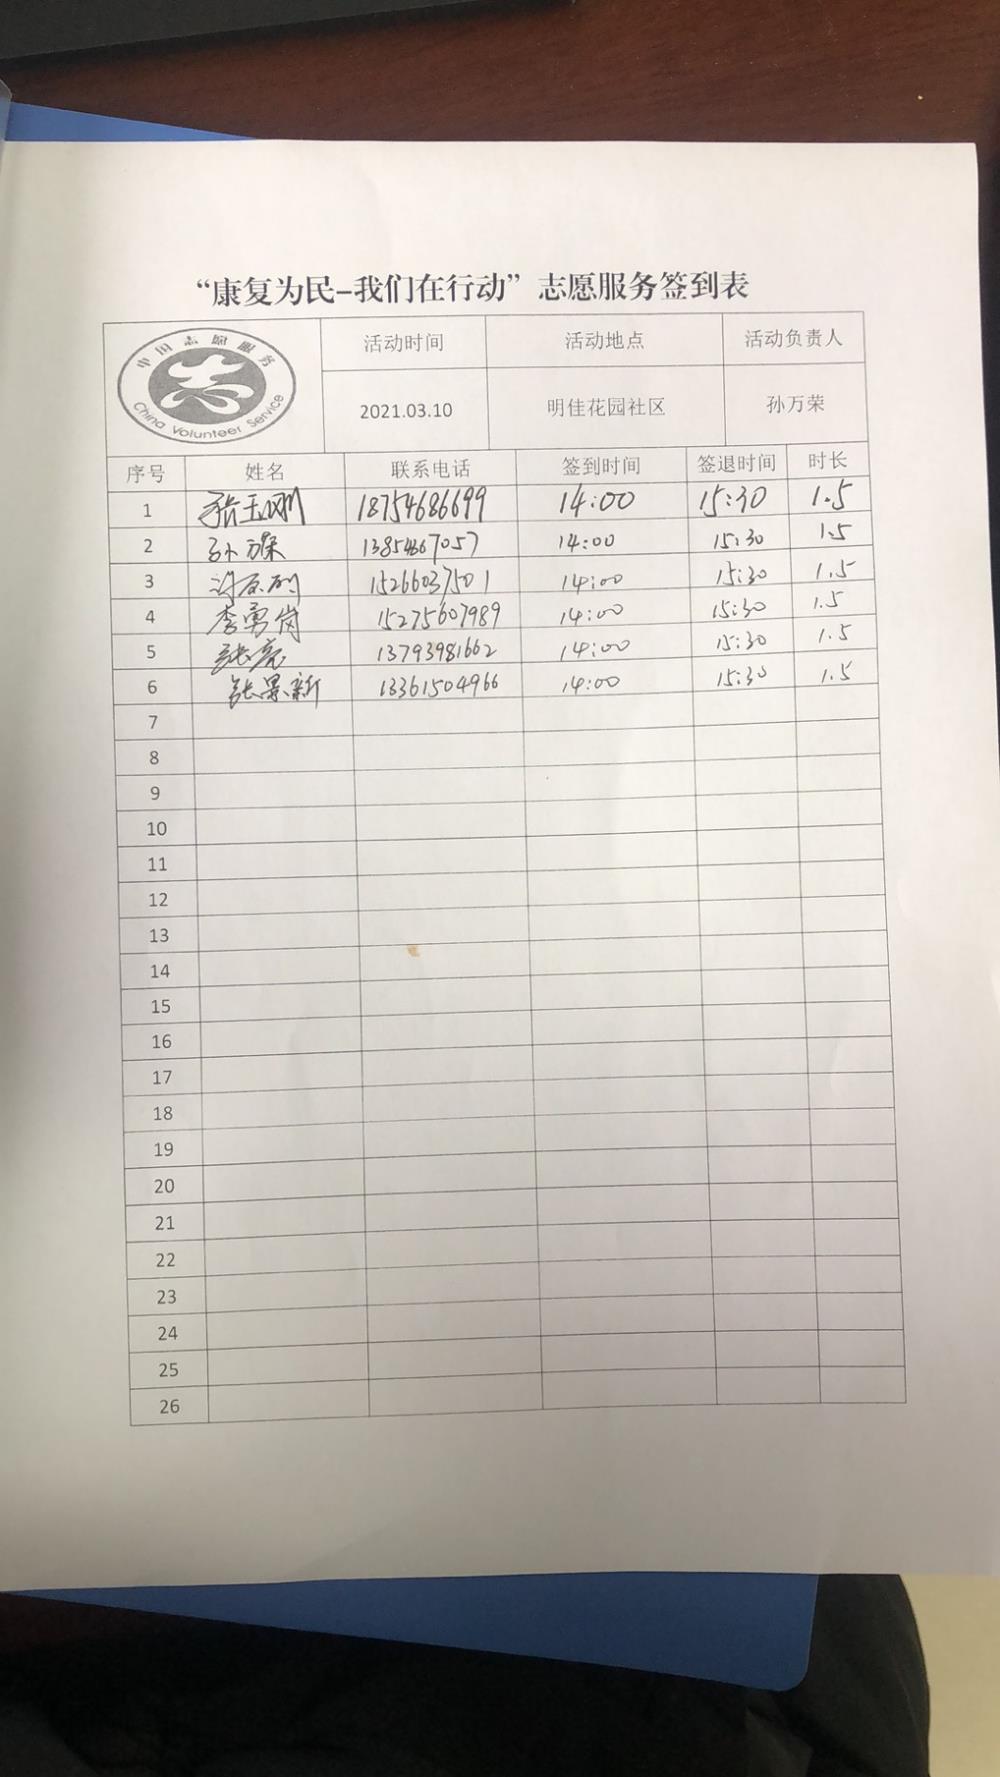 “康复为民–我们在行动”志愿服务签到表
中国志愿服务
China Volunteer Service
活动时间 活动地点 活动负责人
2021.03.10 明佳花园社区 孙万荣
序号 姓名 联系电话 签到时间 签退时间 时长
1 张玉刚 18754686699 14:00 15:30 1.5
2 孙 14:00 15:30 1.5
3 15266037501 14:00 15:30 1.5
4 李勇岗 15275607989 14:00 15:30 1.5
5 张亮 13793981662 14:00 15:30 1.5
6 张景新 13361504966 14:00 15:30 1.5
7
8
9
10
11
12
13
14
15
16
17
18
19
20
21
22
23
24
25
26